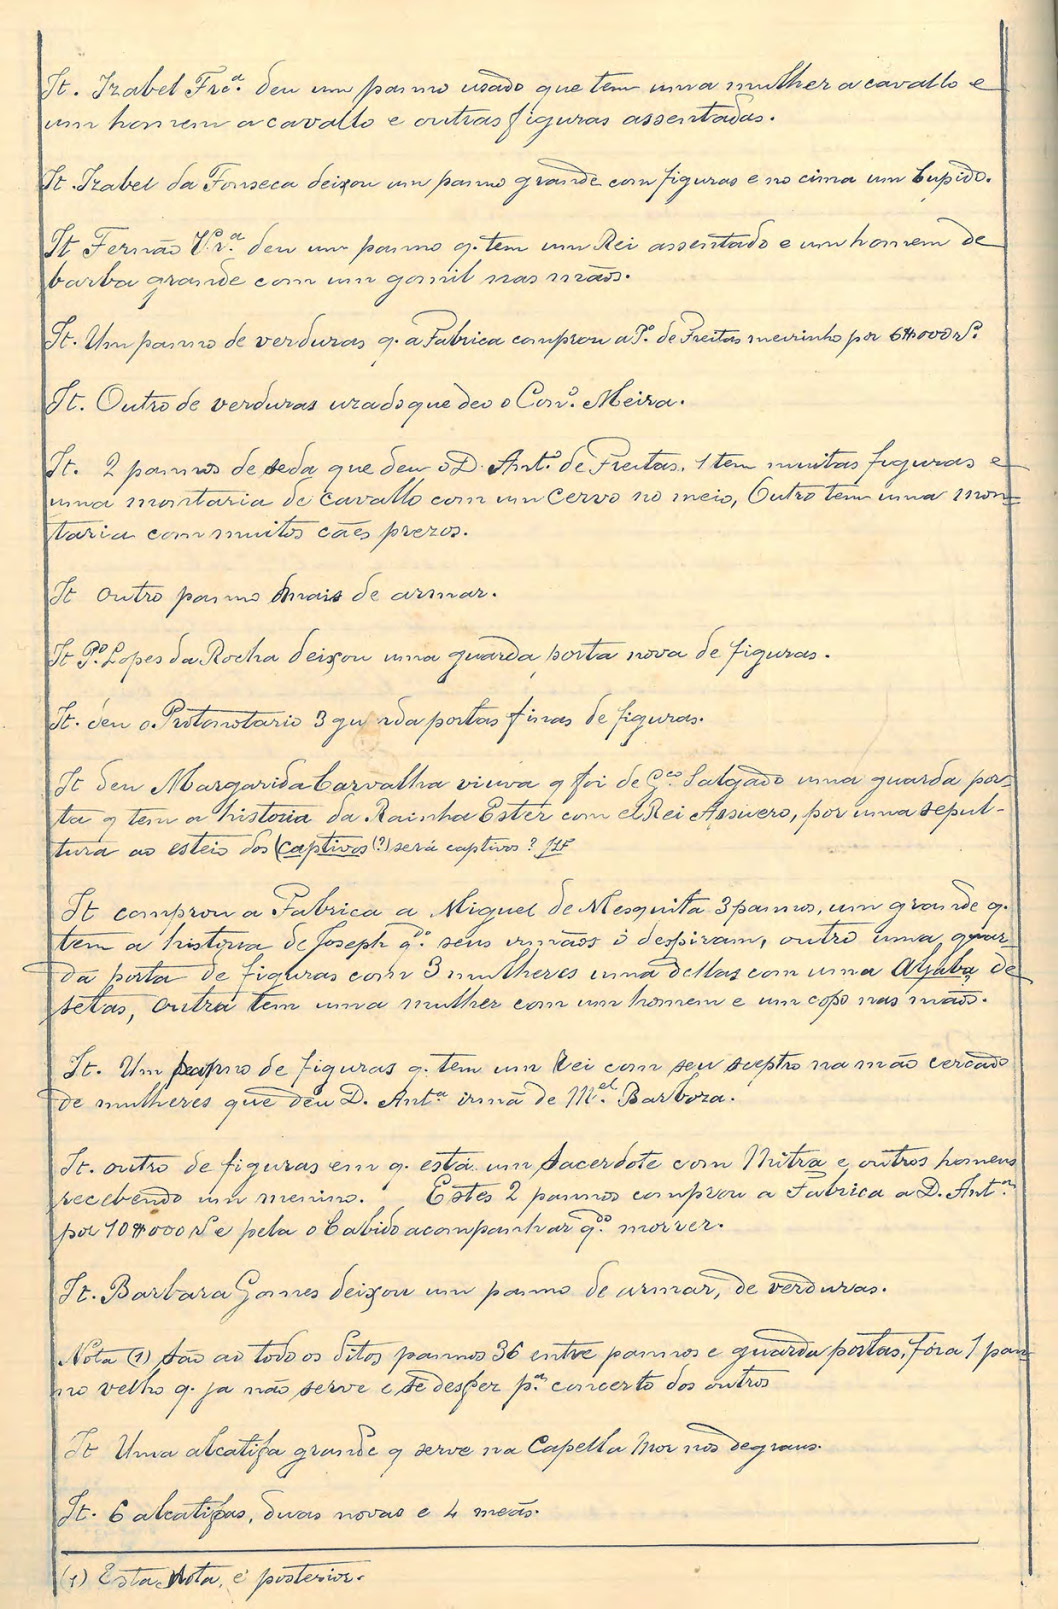 It. Izabel Frc.ª deu um panno usado que tem uma mulher a cavallo e
um homem a cavallo e outras figuras assentadas.
It. Izabel da Fonseca deixou um panno grande com figuras e no cima um Cupido.
It, Fernão Vr.ª deu um panno q. tem um Rei assentado e um homem de
barba grande com um gomil nas mãos.
It. Um panno de verduras q. a Fabrica comprou a P.º de Freitas meirinho por 6#000 rs.
It. Outro de verduras uzado que deo o Con.º Meira.
It. 2 pannos de seda que deu o D. Ant.º de Freitas, 1 tem muitas figuras e
uma montaria de cavallo com um cervo no meio, Outro tem uma mon=
taria com muitos cães prezos.
It outro panno mais de armar.
It P.º Lopes da Rocha deixou uma guarda porta nova de figuras.
It. deu o Protonotario 3 guarda portas finas de figuras.
It deu Margarida Carvalha viuva q foi de G.co Salgado uma guarda por=
ta q tem a historia da Rainha Ester com el Rei Assuero, por uma sepul-
tura ao esteio dos (captivos (?) será captivos?
It comprou a Fabrica a Miguel de Mesquita 3 pannos, um grande q.
tem a historia de Joseph q.do seus irmãos o despiram, outro uma guar-
da porta de figuras com 3 mulheres uma dellas com uma aljaba de
setas, outra tem uma mulher com um homem e um copo nas mãos.
It. Um panno de figuras q. tem um Rei com seu sceptro na mão cercado
de mulheres que deu D. Ant.ª irmã de M.el Barboza.
It. outro de figuras em q. está um Sacerdote com Mitra e outros homens
recebendo um menino. Estes 2 pannos comprou a Fabrica a D. Ant.ª
por 10#000 rs e pela o Cabido acompanhar q.do morrer.
It. Barbara Gomes deixou um panno de armar, de verduras.
Nota (1) São ao todo os ditos pannos 36 entre pannos e guarda portas, fóra 1 pan=
no velho q. ja não serve e se desfez p.ª concerto dos outros
It Uma alcatifa grande q serve na Capella Mor nos degraus.
It. 6 alcatifas, duas novas e 4 meãs.
(1) Esta Nota, é posterior.